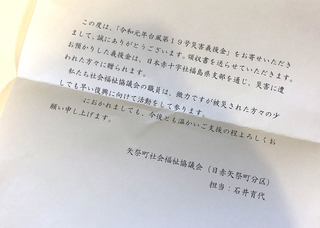 この度は、「令和元年台風第１９号災害義援金」をお寄せいただき
まして、誠にありがとうございます。領収書を送らせていただきます。
お預かりした義援金は、日本赤十字社福島県支部を通じ、災害に遭
われた方々に贈られます。
私たち社会福祉協議会の職員は、微力ですが被災された方々の少
しでも早い復興に向けて活動をして参ります。
におかれましても、今後とも温かいご支援の程よろしくお
願い申し上げます。
矢祭町社会福祉協議会（日赤矢祭町分区）
担当：石井育代